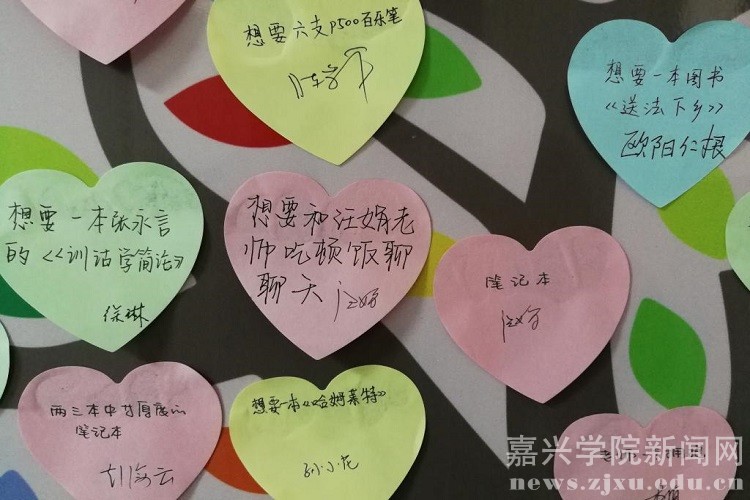 想要六支P500百乐笔
想要一本图书
《送法下乡》
欧阳仁根
想要一本张永言
的《训诂学简论》
徐琳
想要和汪娟老
师吃顿饭聊
聊天
笔记本
两三本中等厚度的
笔记本
胡海云
想要一本《哈姆莱特》
孙小花
嘉兴学院新闻网
news.zjxu.edu.cn